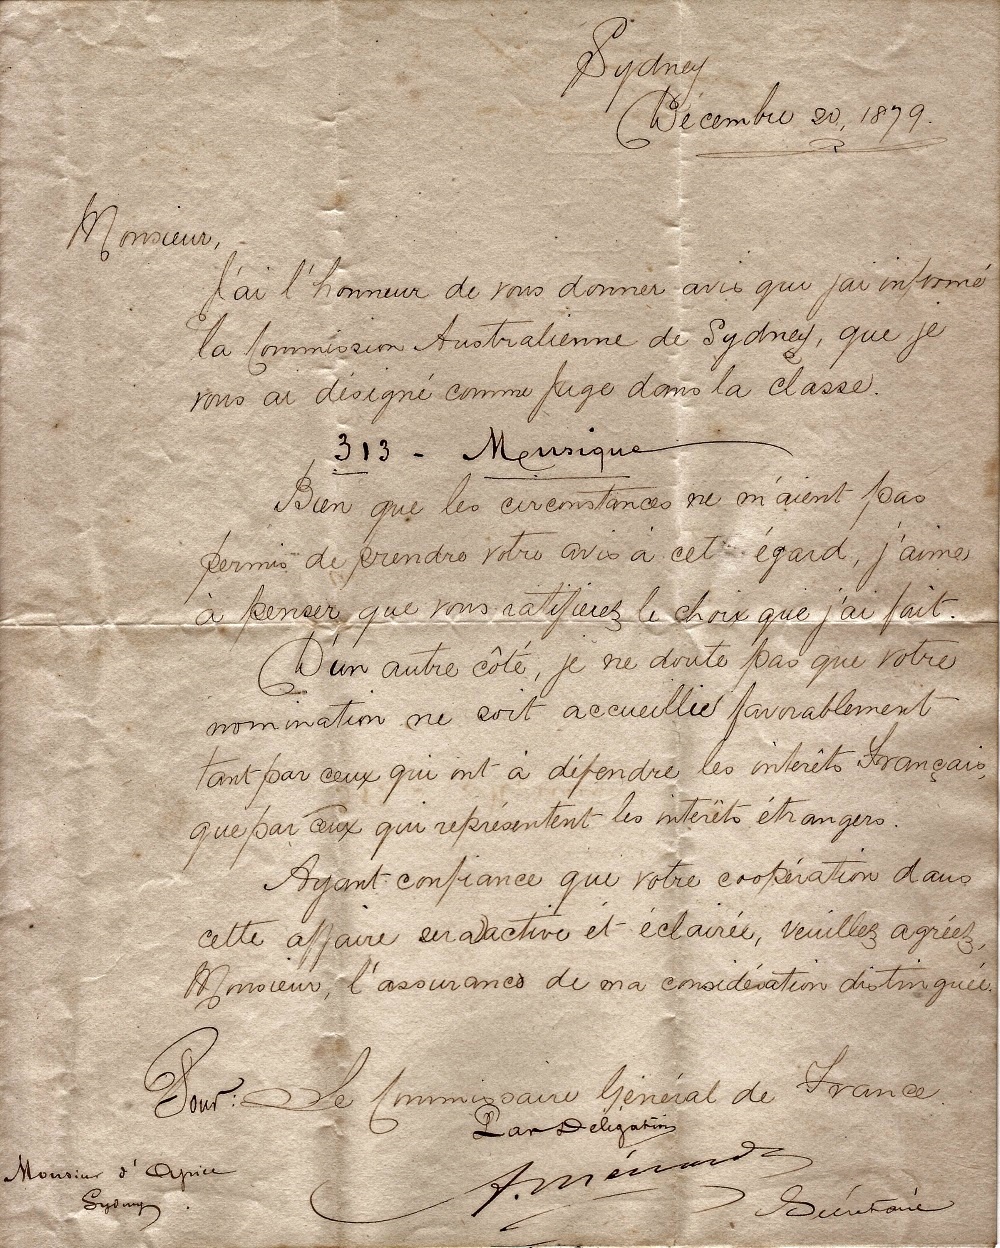 Sydney
Décembre 20, 1879.
Monsieur,
J'ai l'honneur de vous donner avis que j'ai informé
la Commission Australienne de Sydney, que je
vous ai désigné comme Juge dans la classe.
313 - Musique
Bien que les circonstances ne m'aient pas
permis de prendre votre avis à cet égard, j'aime
à penser que vous ratifierez le choix que j'ai fait.
D'un autre côté, je ne doute pas que votre
nomination ne soit accueillie favorablement
tant par ceux qui ont à défendre les intérêts Français,
que par ceux qui représentent les intérêts étrangers.
Ayant confiance que votre coopération dans
cette affaire sera active et éclairée, veuillez agréez,
Monsieur, l'assurance de ma considération distinguée.
Pour: Le Commissaire Général de France.
Par Délégation
A. Ménard
Monsieur d'Apice
Secrétaire
Sydney.